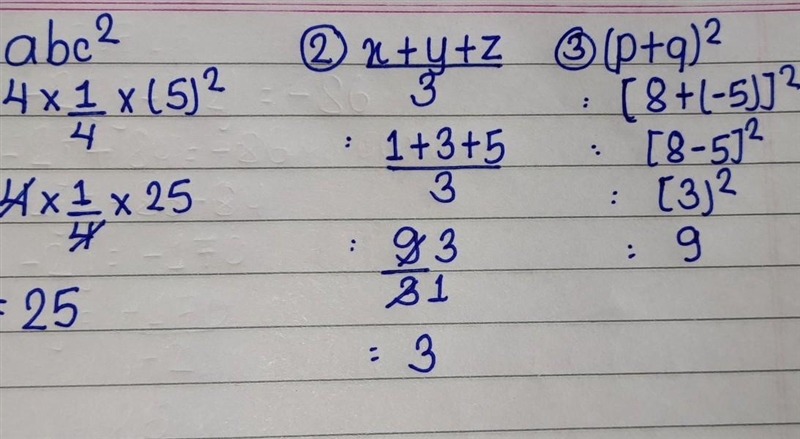 abc²
4 × 1/4 × (5)²
4 × 1/4 × 25
= 25
② x+y+z/3
: 1+3+5/3
: 9 3/3 1
= 3
③ (p+q)²
: [8+(-5)]²
: [8-5]²
: [3)²
: 9